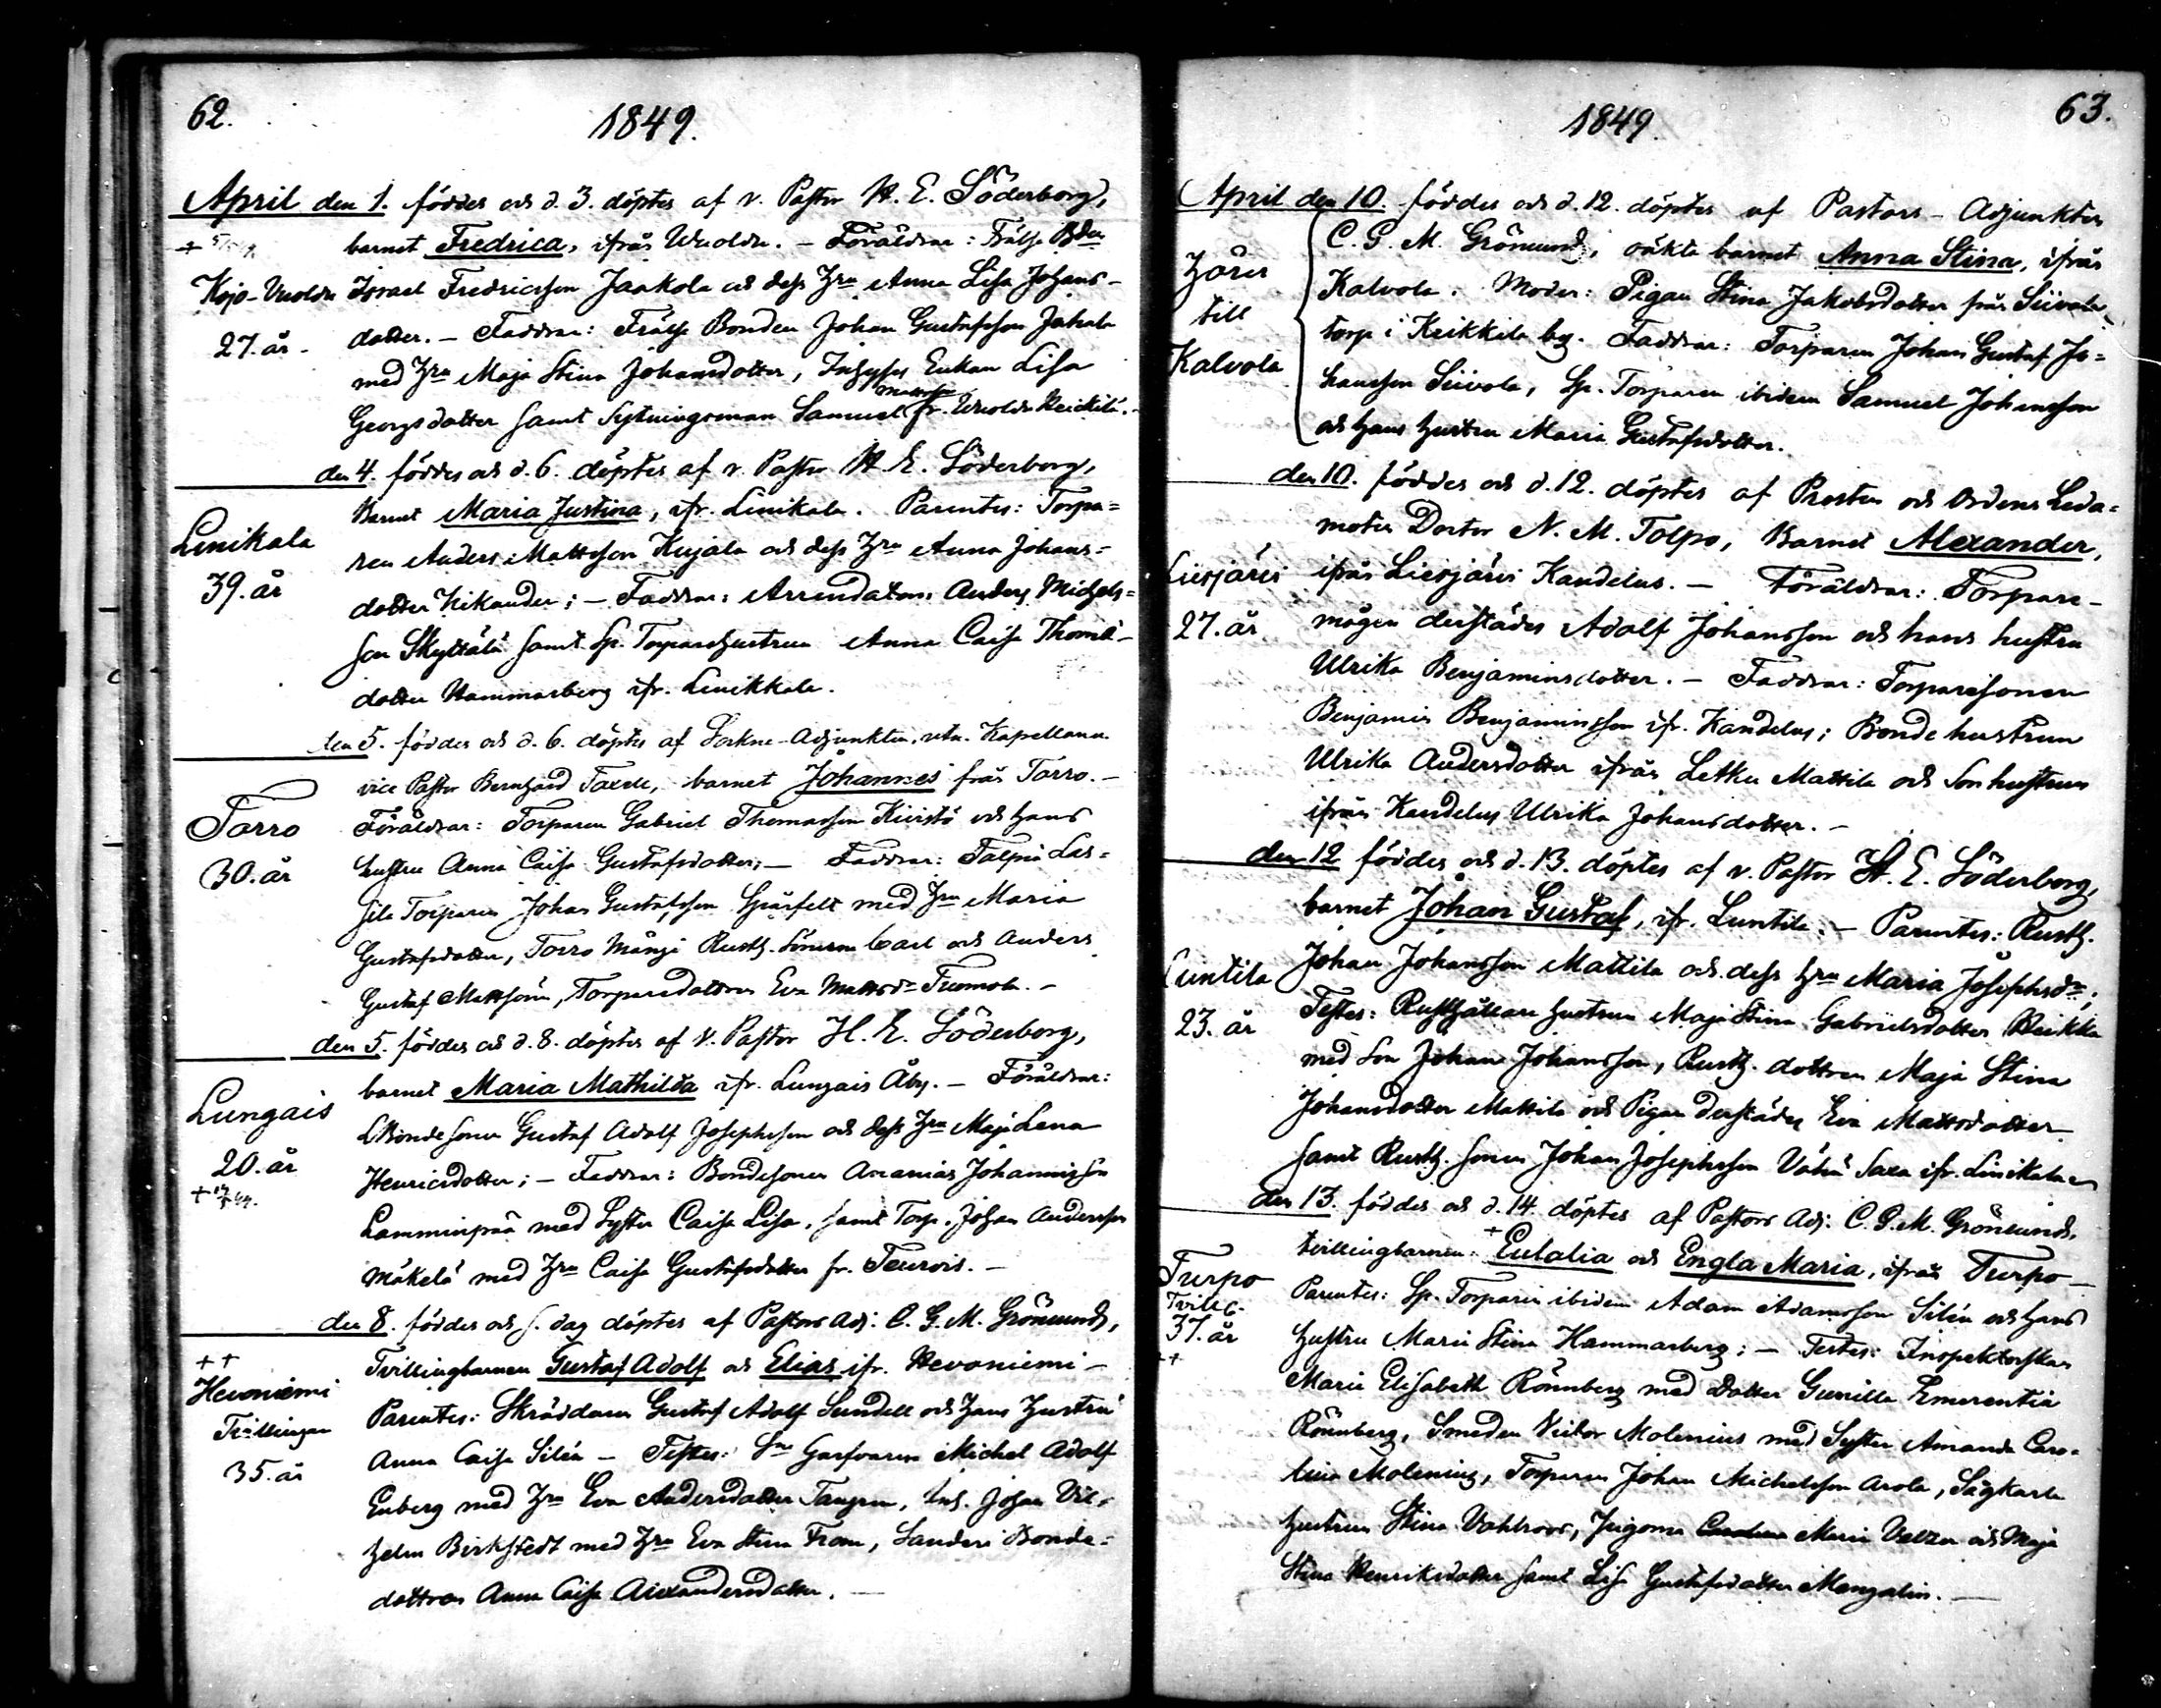 62.
1849.
April den 1. föddes och d. 3. döptes af v. Pastor H. E. Söderborg,
barnet Fredrica, ifrån Wuolde. – Föräldrar: Frälse Bden
Kojo-Wuolde Israel Fredricsson Jaakola och dess Hru Anna Lisa Johans-
27. år. dotter. – Faddrar: Frälse Bonden Johan Gustafsson Jahala
med Hru Maja Stina Johansdotter, Inhyses Enkan Lisa
Georgsdotter samt Sytningsman Samuel Mattsson fr. Wuolde Heikkilä. –
den 4. föddes och d. 6. döptes af v. Pastor H. E. Söderborg,
Barnet Maria Justina, ifr. Linikala. Parentes: Torpa=
Linikala ren Anders Mattsson Kujala och dess Hru Anna Johans=
39. år dotter Nikander; – Faddrar: Arrendatorn Anders Michels=
son Skyttälä samt Sp. Torparehustrun Anna Caisa Thomæ-
dotter Hammarberg ifr. Linikkala.
den 5. föddes och d. 6. döptes af Sockne-Adjunkten, utn. Kapellanen
vice Pastor Bernhard Taxell, barnet Johannes från Torro. –
Torro Föräldrar: Torparen Gabriel Thomasson Kivistö och hans
30. år hustru Anna Caisa Gustafsdotter; – Faddrar: Talpia Las=
sila Torparen Johan Gustafsson Sparfelt med Hru Maria
Gustafsdotter, Torro Mänzi Rusth. Sönerna Carl och Anders
Gustaf Mattssöner, Torparedottren Eva Mattsdr Tuomola. –
den 5. föddes och d. 8. döptes af v. Pastor H. E. Söderborg,
barnet Maria Mathilda ifr. Lungais Åby. – Föräldrar:
Lungais Bondesonen Gustaf Adolf Josephsson och dess Hru Maja Lena
20. år Henricsdotter; – Faddrar: Bondesonen Ananias Johannisson
Lamminpää med Syster Caisa Lisa, samt Torp. Johan Andersson
Mäkelä med Hru Caisa Gustafsdotter fr. Teurois. –
den 8. föddes och s. dag döptes af Pastors Adj: C. G. M. Grönmund,
++ Tvillingbarnen Gustaf Adolf och Elias ifr. Hevoniemi –
Hevoniemi Parentes: Skräddaren Gustaf Adolf Sundell och hans hustru
Tvillingar Anna Caisa Silén – Testes: Garfvaren Michel Adolf
35. år Enberg med Hru Eva Andersdotter Tangren, Inh. Johan Vil=
helm Birkstedt med Hru Eva Stina Fram, Sanderi Bonde=
dottren Anna Caisa Alexandersdotter. –
1849.
63.
April den 10. föddes och d. 12. döptes af Pastors-Adjunkten
C. G. M. Grönmund, oäkta barnet Anna Stina, ifrån
hörer Kalvola. Moder: Pigan Stina Jakobsdotter från Siivola
till torp i Keikkila by. Faddrar: Torparen Johan Gustaf Jo=
Kalvola hansson Siivola, Sp. Torparen ibidem Samuel Johansson
och hans hustru Maria Gustafsdotter.
den 10. föddes och d. 12. döptes af Prosten och Ordens Leda=
moten Doctor N. M. Tolpo, Barnet Alexander,
Liesjärvi ifrån Liesjärvi Kandelus. – Föräldrar: Torpare-
27. år mågen derstädes Adolf Johansson och hans hustru
Ulrika Benjaminsdotter. – Faddrar: Torparesonen
Benjamin Benjaminsson ifr. Kandelus; Bondehustrun
Ulrika Andersdotter ifrån Letku Mattila och Sonhustrun
ifrån Kandelus Ulrika Johansdotter. –
den 12 föddes och d. 13. döptes af v. Pastor H. E. Söderborg,
barnet Johan Gustaf, ifr. Luntila. – Parentes: Rusth.
Luntila Johan Johansson Mattila och dess Hru Maria Josephsdr;
23. år Testes: Rusthållare hustrun Maja Stina Gabrielsdotter Heikka
med Son Johan Johansson, Rusth. dottren Maja Stina
Johansdotter Mattila och Pigan derstädes Eva Mattsdotter
samt Rusth. sonen Johan Josephsson Vähä Saxa ifr. Linikala
den 13. föddes och d. 14. döptes af Pastors Adj: C. G. M. Grönmund,
tvillingbarnen: + Eulalia och Engla Maria, ifrån Turpo –
Turpo Parentes: Sp. Torparen ibidem Adam Adamsson Silén och hans
37. år hustru Maria Stina Hammarberg; – Testes: Inspektorskan
++ Maria Elisabeth Rönnberg med Dotter Gunilla Emerentia
Rönnberg, Smeden Victor Molenius med Syster Amanda Caro=
lina Molenius, Torparen Johan Michelsson Arola, Sågkarls
hustrun Stina Vahlroos, Pigorna Maria Velzen och Maja
Stina Henriksdotter samt Lisa Gustafsdotter Mangalin. –